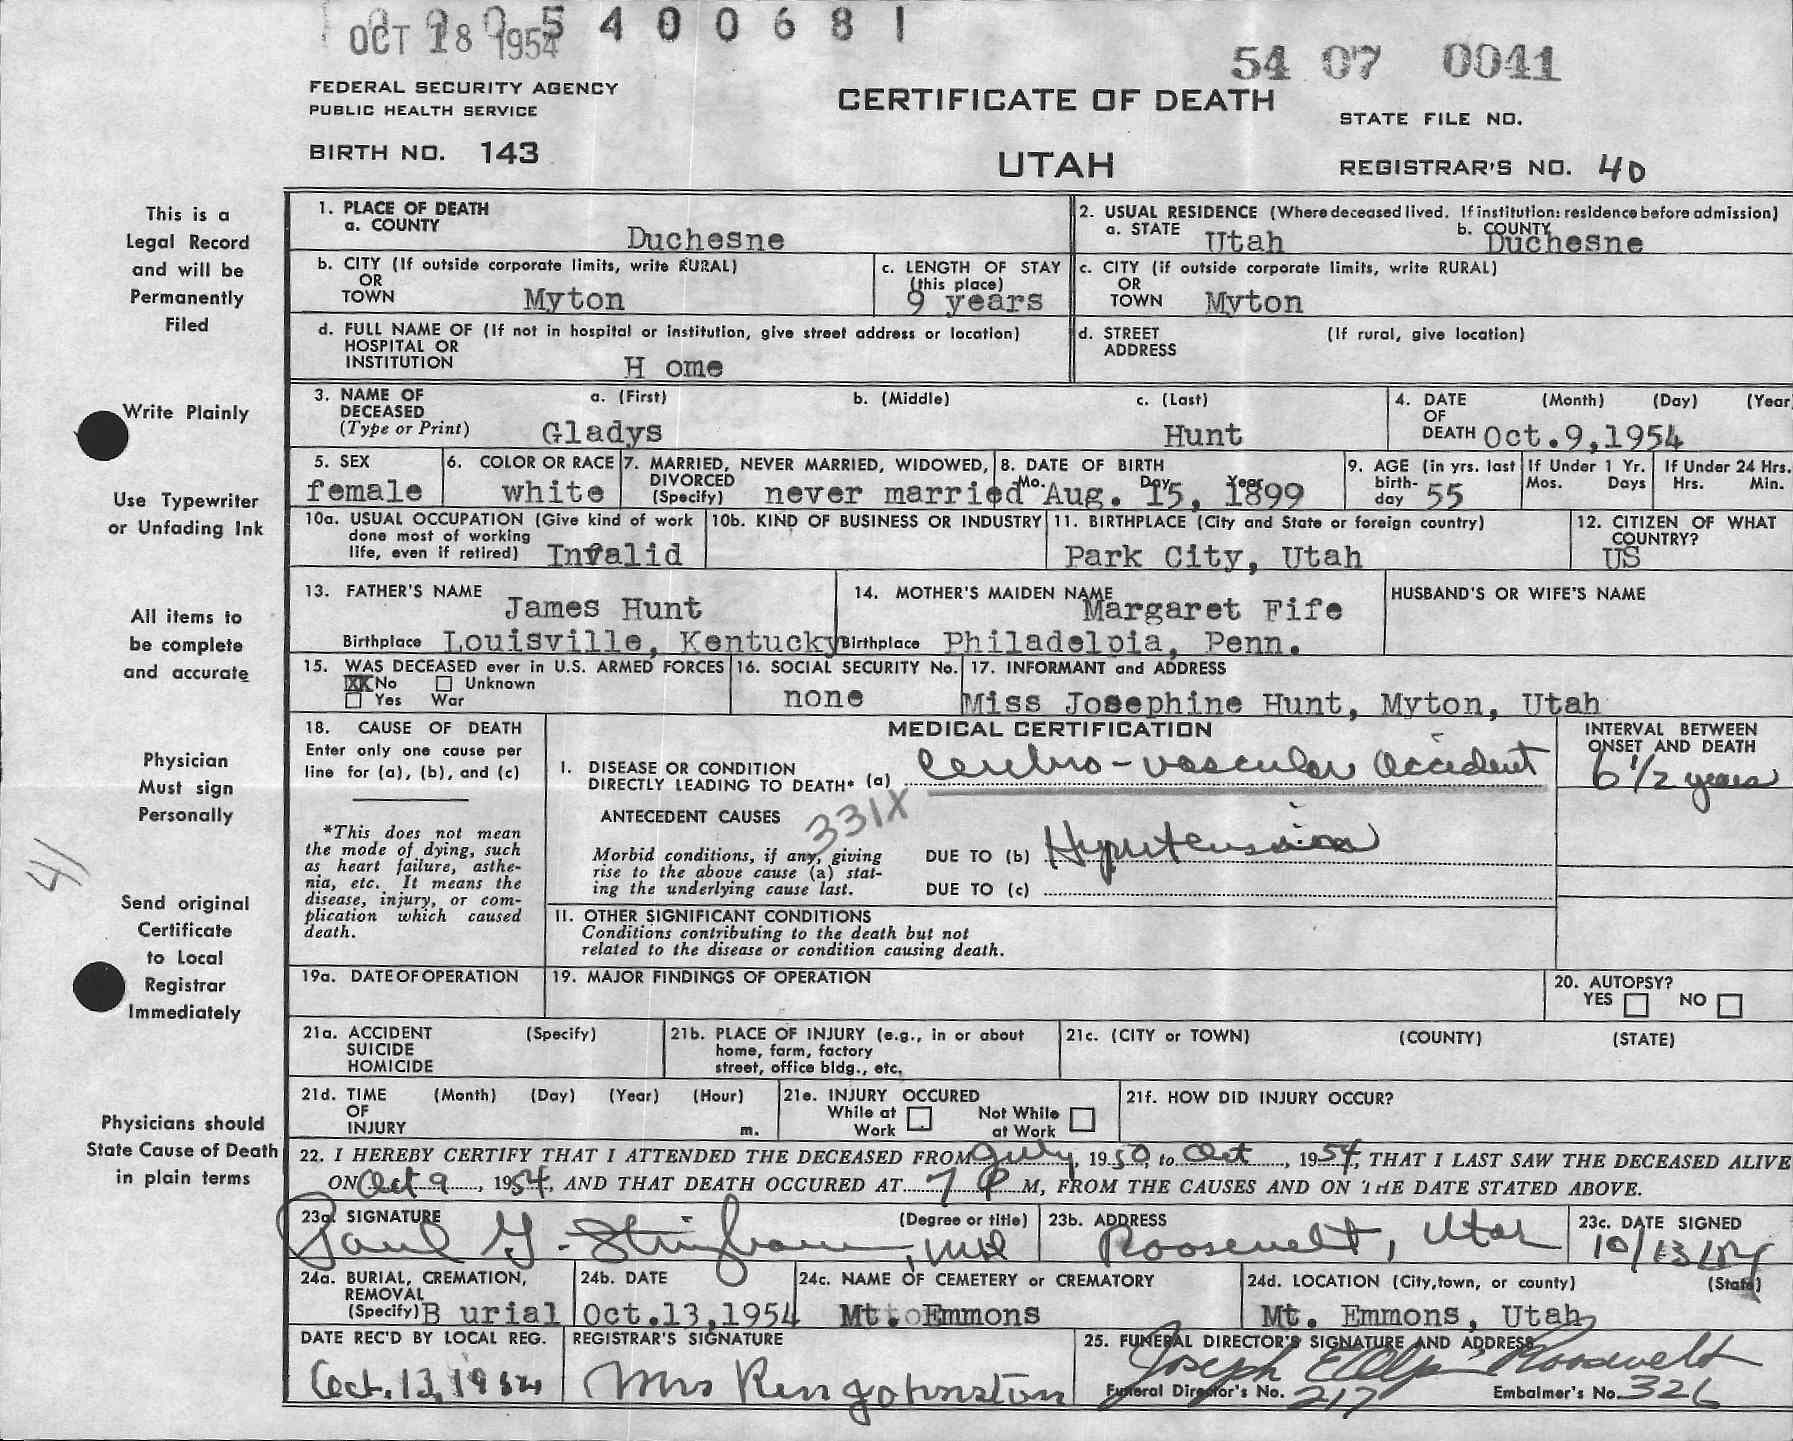 OCT 18 1954
5 4 0 0 6 8 1
54 07 0041
FEDERAL SECURITY AGENCY
PUBLIC HEALTH SERVICE
CERTIFICATE OF DEATH
STATE FILE NO.
BIRTH NO. 143
UTAH
REGISTRAR'S NO. 40
This is a
Legal Record
and will be
Permanently
Filed
Write Plainly
Use Typewriter
or Unfading Ink
All items to
be complete
and accurate
Physician
Must sign
Personally
41
Send original
Certificate
to Local
Registrar
Immediately
Physicians should
State Cause of Death
in plain terms
1. PLACE OF DEATH
a. COUNTY Duchesne
2. USUAL RESIDENCE (Where deceased lived. If institution: residence before admission)
a. STATE Utah b. COUNTY Duchesne
b. CITY (If outside corporate limits, write RURAL)
OR
TOWN Myton
c. LENGTH OF STAY
(this place)
9 years
c. CITY (if outside corporate limits, write RURAL)
OR
TOWN Myton
d. FULL NAME OF (If not in hospital or institution, give street address or location)
HOSPITAL OR
INSTITUTION H ome
d. STREET (If rural, give location)
ADDRESS
3. NAME OF DECEASED
(Type or Print)
a. (First) b. (Middle) c. (Last)
Gladys Hunt
4. DATE (Month) (Day) (Year
OF
DEATH Oct.9,1954
5. SEX
female
6. COLOR OR RACE
white
7. MARRIED, NEVER MARRIED, WIDOWED,
DIVORCED
(Specify) never married
8. DATE OF BIRTH
Mo. Day Year
Aug. 15, 1899
9. AGE (in yrs. last
birth-
day 55
If Under 1 Yr.
Mos. Days
If Under 24 Hrs.
Hrs. Min.
10a. USUAL OCCUPATION (Give kind of work
done most of working
life, even if retired) Invalid
10b. KIND OF BUSINESS OR INDUSTRY
11. BIRTHPLACE (City and State or foreign country)
Park City, Utah
12. CITIZEN OF WHAT
COUNTRY?
US
13. FATHER'S NAME
James Hunt
Birthplace Louisville, Kentucky
14. MOTHER'S MAIDEN NAME
Margaret Fife
Birthplace Philadelpia, Penn.
HUSBAND'S OR WIFE'S NAME
15. WAS DECEASED ever in U.S. ARMED FORCES
XX No Unknown
Yes War
16. SOCIAL SECURITY No.
none
17. INFORMANT and ADDRESS
Miss Josephine Hunt, Myton, Utah
18. CAUSE OF DEATH
Enter only one cause per
line for (a), (b), and (c)
*This does not mean
the mode of dying, such
as heart failure, asthe-
nia, etc. It means the
disease, injury, or com-
plication which caused
death.
MEDICAL CERTIFICATION
I. DISEASE OR CONDITION
DIRECTLY LEADING TO DEATH* (a) Cerebro-vascular accident
ANTECEDENT CAUSES
331X
Morbid conditions, if any, giving
rise to the above cause (a) stat-
ing the underlying cause last.
DUE TO (b) Hypertension
DUE TO (c)
INTERVAL BETWEEN
ONSET AND DEATH
6 1/2 years
II. OTHER SIGNIFICANT CONDITIONS
Conditions contributing to the death but not
related to the disease or condition causing death.
19a. DATE OF OPERATION
19. MAJOR FINDINGS OF OPERATION
20. AUTOPSY?
YES NO
21a. ACCIDENT (Specify)
SUICIDE
HOMICIDE
21b. PLACE OF INJURY (e.g., in or about
home, farm, factory
street, office bldg., etc.
21c. (CITY or TOWN) (COUNTY) (STATE)
21d. TIME (Month) (Day) (Year) (Hour)
OF
INJURY m.
21e. INJURY OCCURED
While at Work Not While at Work
21f. HOW DID INJURY OCCUR?
22. I HEREBY CERTIFY THAT I ATTENDED THE DECEASED FROM July, 1950, to Oct, 1954, THAT I LAST SAW THE DECEASED ALIVE
ON Oct 9, 1954, AND THAT DEATH OCCURED AT 7 P M, FROM THE CAUSES AND ON THE DATE STATED ABOVE.
23a. SIGNATURE (Degree or title)
Paul G. Stringham, MD
23b. ADDRESS
Roosevelt, Utah
23c. DATE SIGNED
10/13/54
24a. BURIAL, CREMATION,
REMOVAL
(Specify) B urial
24b. DATE
Oct.13,1954
24c. NAME OF CEMETERY or CREMATORY
Mt. Emmons
24d. LOCATION (City, town, or county) (State)
Mt. Emmons, Utah
DATE REC'D BY LOCAL REG.
Oct. 13, 1954
REGISTRAR'S SIGNATURE
Mrs Ken Johnston
25. FUNERAL DIRECTOR'S SIGNATURE AND ADDRESS
Joseph Roosevelt
Funeral Director's No. 217 Embalmer's No. 326